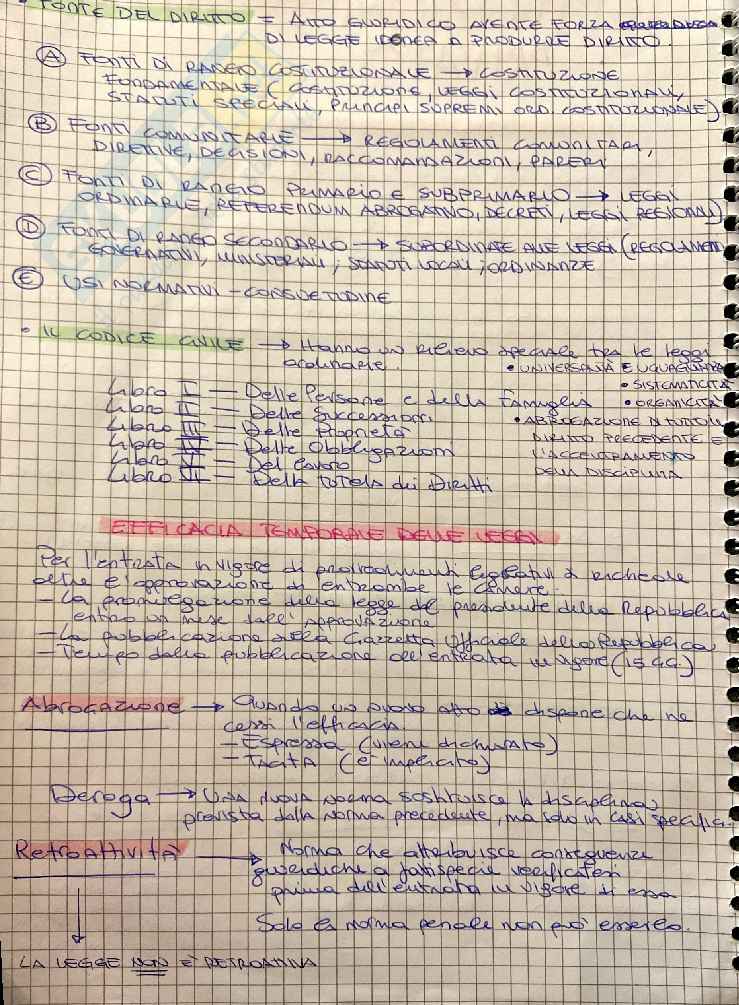 • FONTE DEL DIRITTO = ATTO GIURIDICO AVENTE FORZA
DI LEGGE IDONEA A PRODURRE DIRITTO.
A FONTI DI RANGO COSTITUZIONALE → COSTITUZIONE
FONDAMENTALE (COSTITUZIONE, LEGGI COSTITUZIONALI,
STATUTI SPECIALI, PRINCIPI SUPREMI ORD. COSTITUZIONALE)
B FONTI COMUNITARIE → REGOLAMENTI COMUNITARI,
DIRETTIVE, DECISIONI, RACCOMANDAZIONI, PARERI
C FONTI DI RANGO PRIMARIO E SUBPRIMARIO → LEGGI
ORDINARIE, REFERENDUM ABROGATIVO, DECRETI, LEGGI REGIONALI)
D FONTI DI RANGO SECONDARIO → SUBORDINATE ALLE LEGGI (REGOLAMENTI
GOVERNATIVI, MINISTERIALI; STATUTI LOCALI; ORDINANZE
E USI NORMATIVI - CONSUETUDINE
• IL CODICE CIVILE → Hanno un rilievo speciale tra le leggi
ordinarie.
• UNIVERSALITÀ E UGUAGLIANZA
• SISTEMATICITÀ
• ORGANICITÀ
• ABROGAZIONE DI TUTTO IL
DIRITTO PRECEDENTE E
L'ACCORPAMENTO
DELLA DISCIPLINA
Libro I — Delle Persone e della Famiglia
Libro II — Delle Successioni
Libro III — Delle Proprietà
Libro IV — Delle Obbligazioni
Libro V — Del Lavoro
Libro VI — Della tutela dei Diritti
EFFICACIA TEMPORALE DELLE LEGGI
Per l'entrata in vigore di provvedimenti legislativi è richiesta
oltre l'approvazione di entrambe le camere.
- La promulgazione della legge del presidente della Repubblica,
entro un mese dall'approvazione
- La pubblicazione sulla Gazzetta Ufficiale della Repubblica
- Tempo dalla pubblicazione all'entrata in vigore (15 gg.)
Abrogazione → Quando un nuovo atto dispone che ne
cessi l'efficacia.
- Espressa (viene dichiarato)
- TACITA (è implicito)
Deroga → Una nuova norma sostituisce la disciplina
prevista dalla norma precedente, ma solo in casi specifici.
Retroattività → Norma che attribuisce conseguenze
giuridiche a fattispecie verificatesi
prima dell'entrata in vigore di essa
Solo la norma penale non può esserlo.
LA LEGGE NON È RETROATTIVA